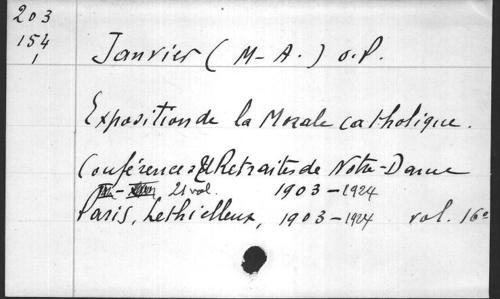 203
154
1
Janvier (M-A.) o.P.
Exposition de la Morale catholique.
Conférences & Retraites de Notre-Dame
21 vol. 1903-1924
Paris, Lethielleux, 1903-1924 vol. 16°